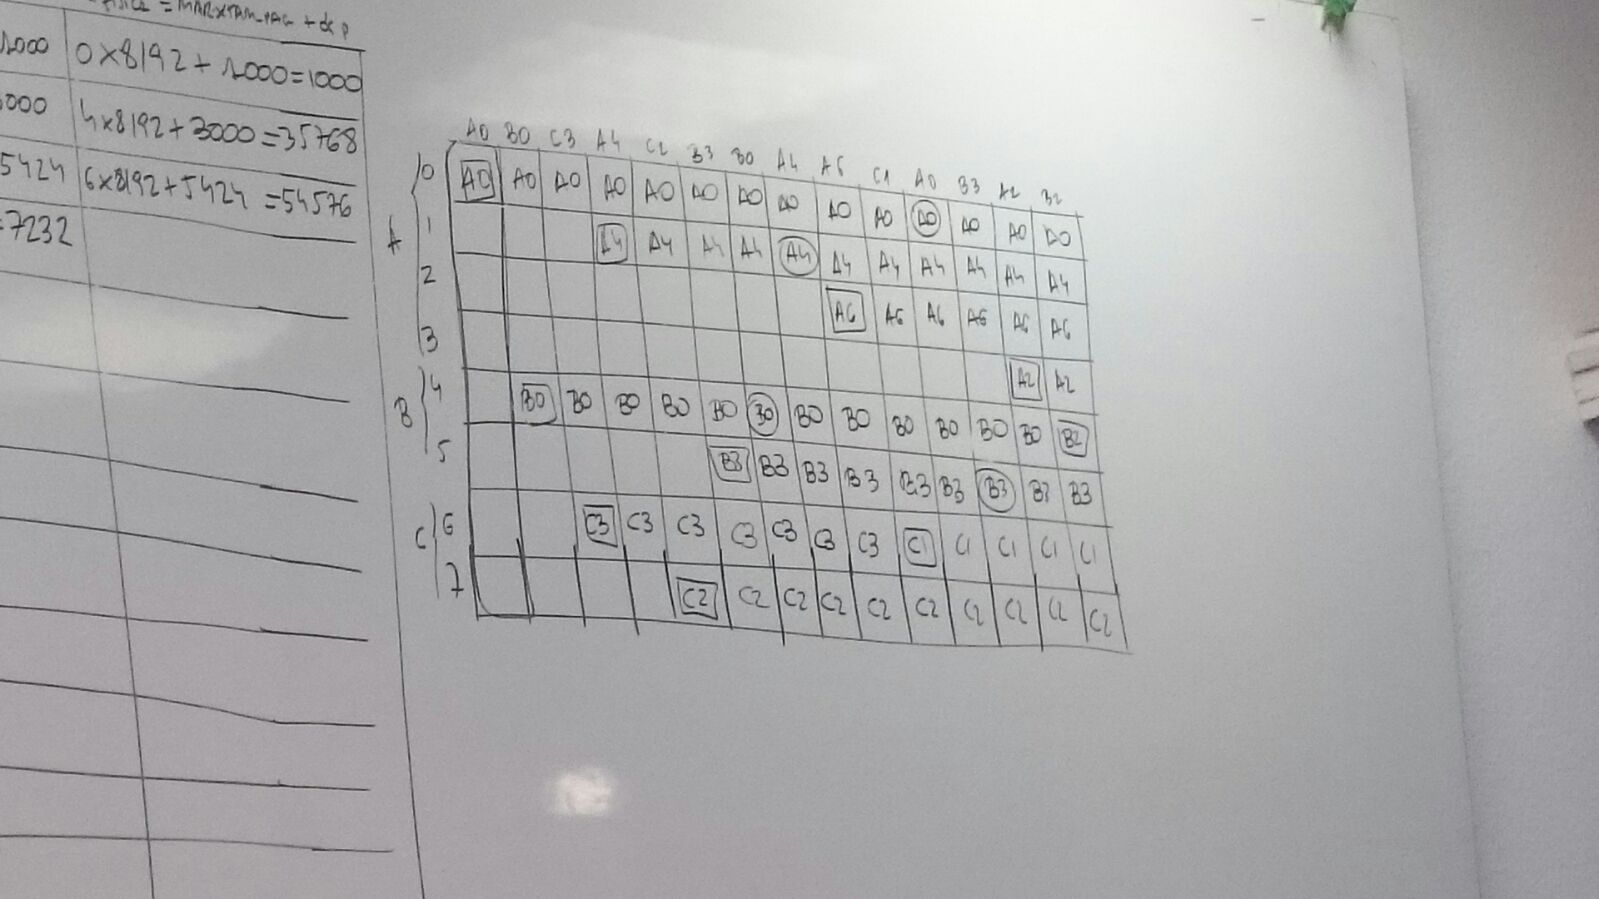 = MAR x TAM_PAG + dcp
1000 0x8192+1000=1000
000 4x8192+3000=35768
5424 6x8192+5424=54576
=7232
A0 B0 C3 A4 C2 B3 B0 A4 A6 C1 A0 B3 A2 B2
A
0 A0 A0 A0 A0 A0 A0 A0 A0 A0 A0 A0 A0 A0 A0
1 A4 A4 A4 A4 A4 A4 A4 A4 A4 A4 A4
2 A6 A6 A6 A6 A6 A6
3 A2 A2
B
4 B0 B0 B0 B0 B0 B0 B0 B0 B0 B0 B0 B0 B2
5 B3 B3 B3 B3 B3 B3 B3 B3 B3
C
6 C3 C3 C3 C3 C3 C3 C3 C1 C1 C1 C1 C1
7 C2 C2 C2 C2 C2 C2 C2 C2 C2 C2